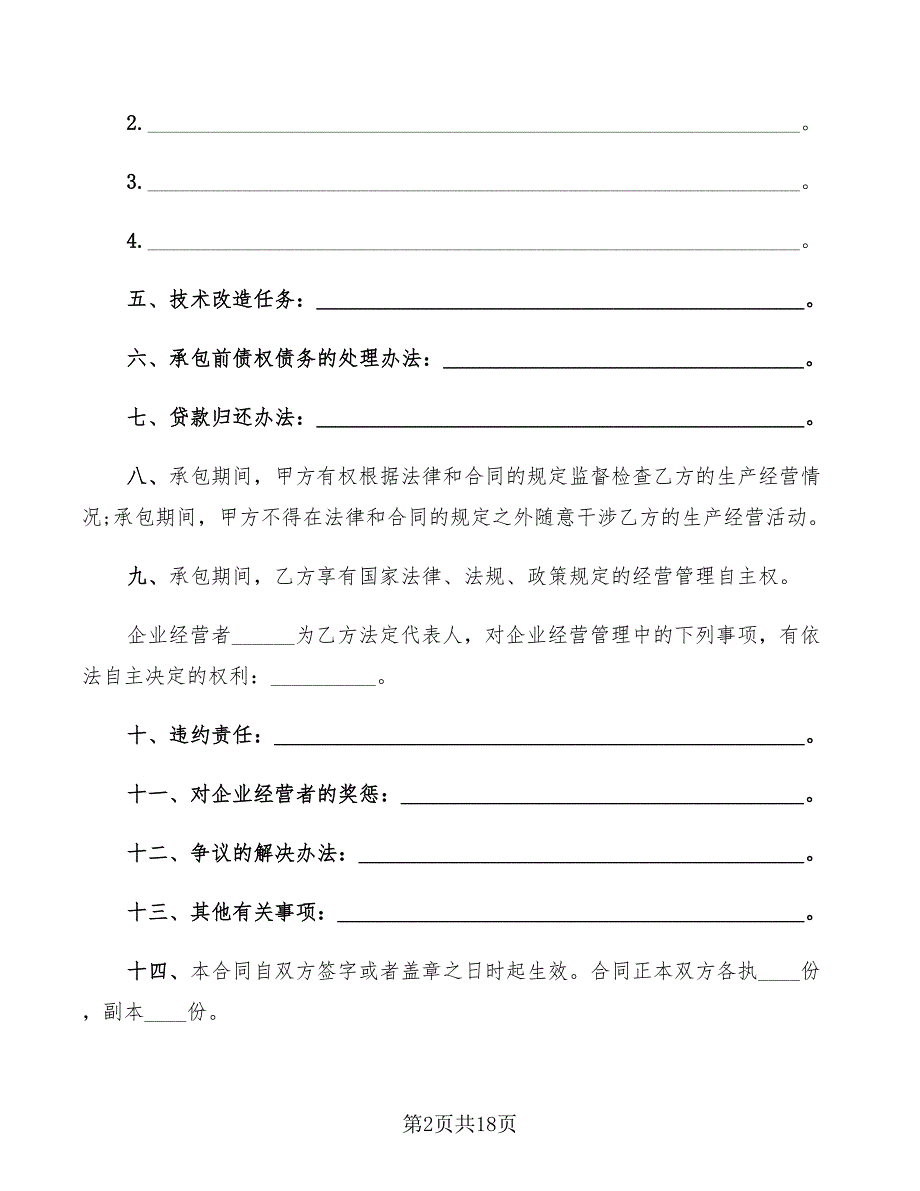 2.______________________________________________________________。
3.______________________________________________________________。
4.______________________________________________________________。
五、技术改造任务：______________________________________________。
六、承包前债权债务的处理办法：__________________________________。
七、贷款归还办法：______________________________________________。
八、承包期间，甲方有权根据法律和合同的规定监督检查乙方的生产经营情
况;承包期间，甲方不得在法律和合同的规定之外随意干涉乙方的生产经营活动。
九、承包期间，乙方享有国家法律、法规、政策规定的经营管理自主权。
企业经营者______为乙方法定代表人，对企业经营管理中的下列事项，有依
法自主决定的权利：__________。
十、违约责任：__________________________________________________。
十一、对企业经营者的奖惩：______________________________________。
十二、争议的解决办法：__________________________________________。
十三、其他有关事项：____________________________________________。
十四、本合同自双方签字或者盖章之日时起生效。合同正本双方各执____份
，副本____份。
第2页共18页